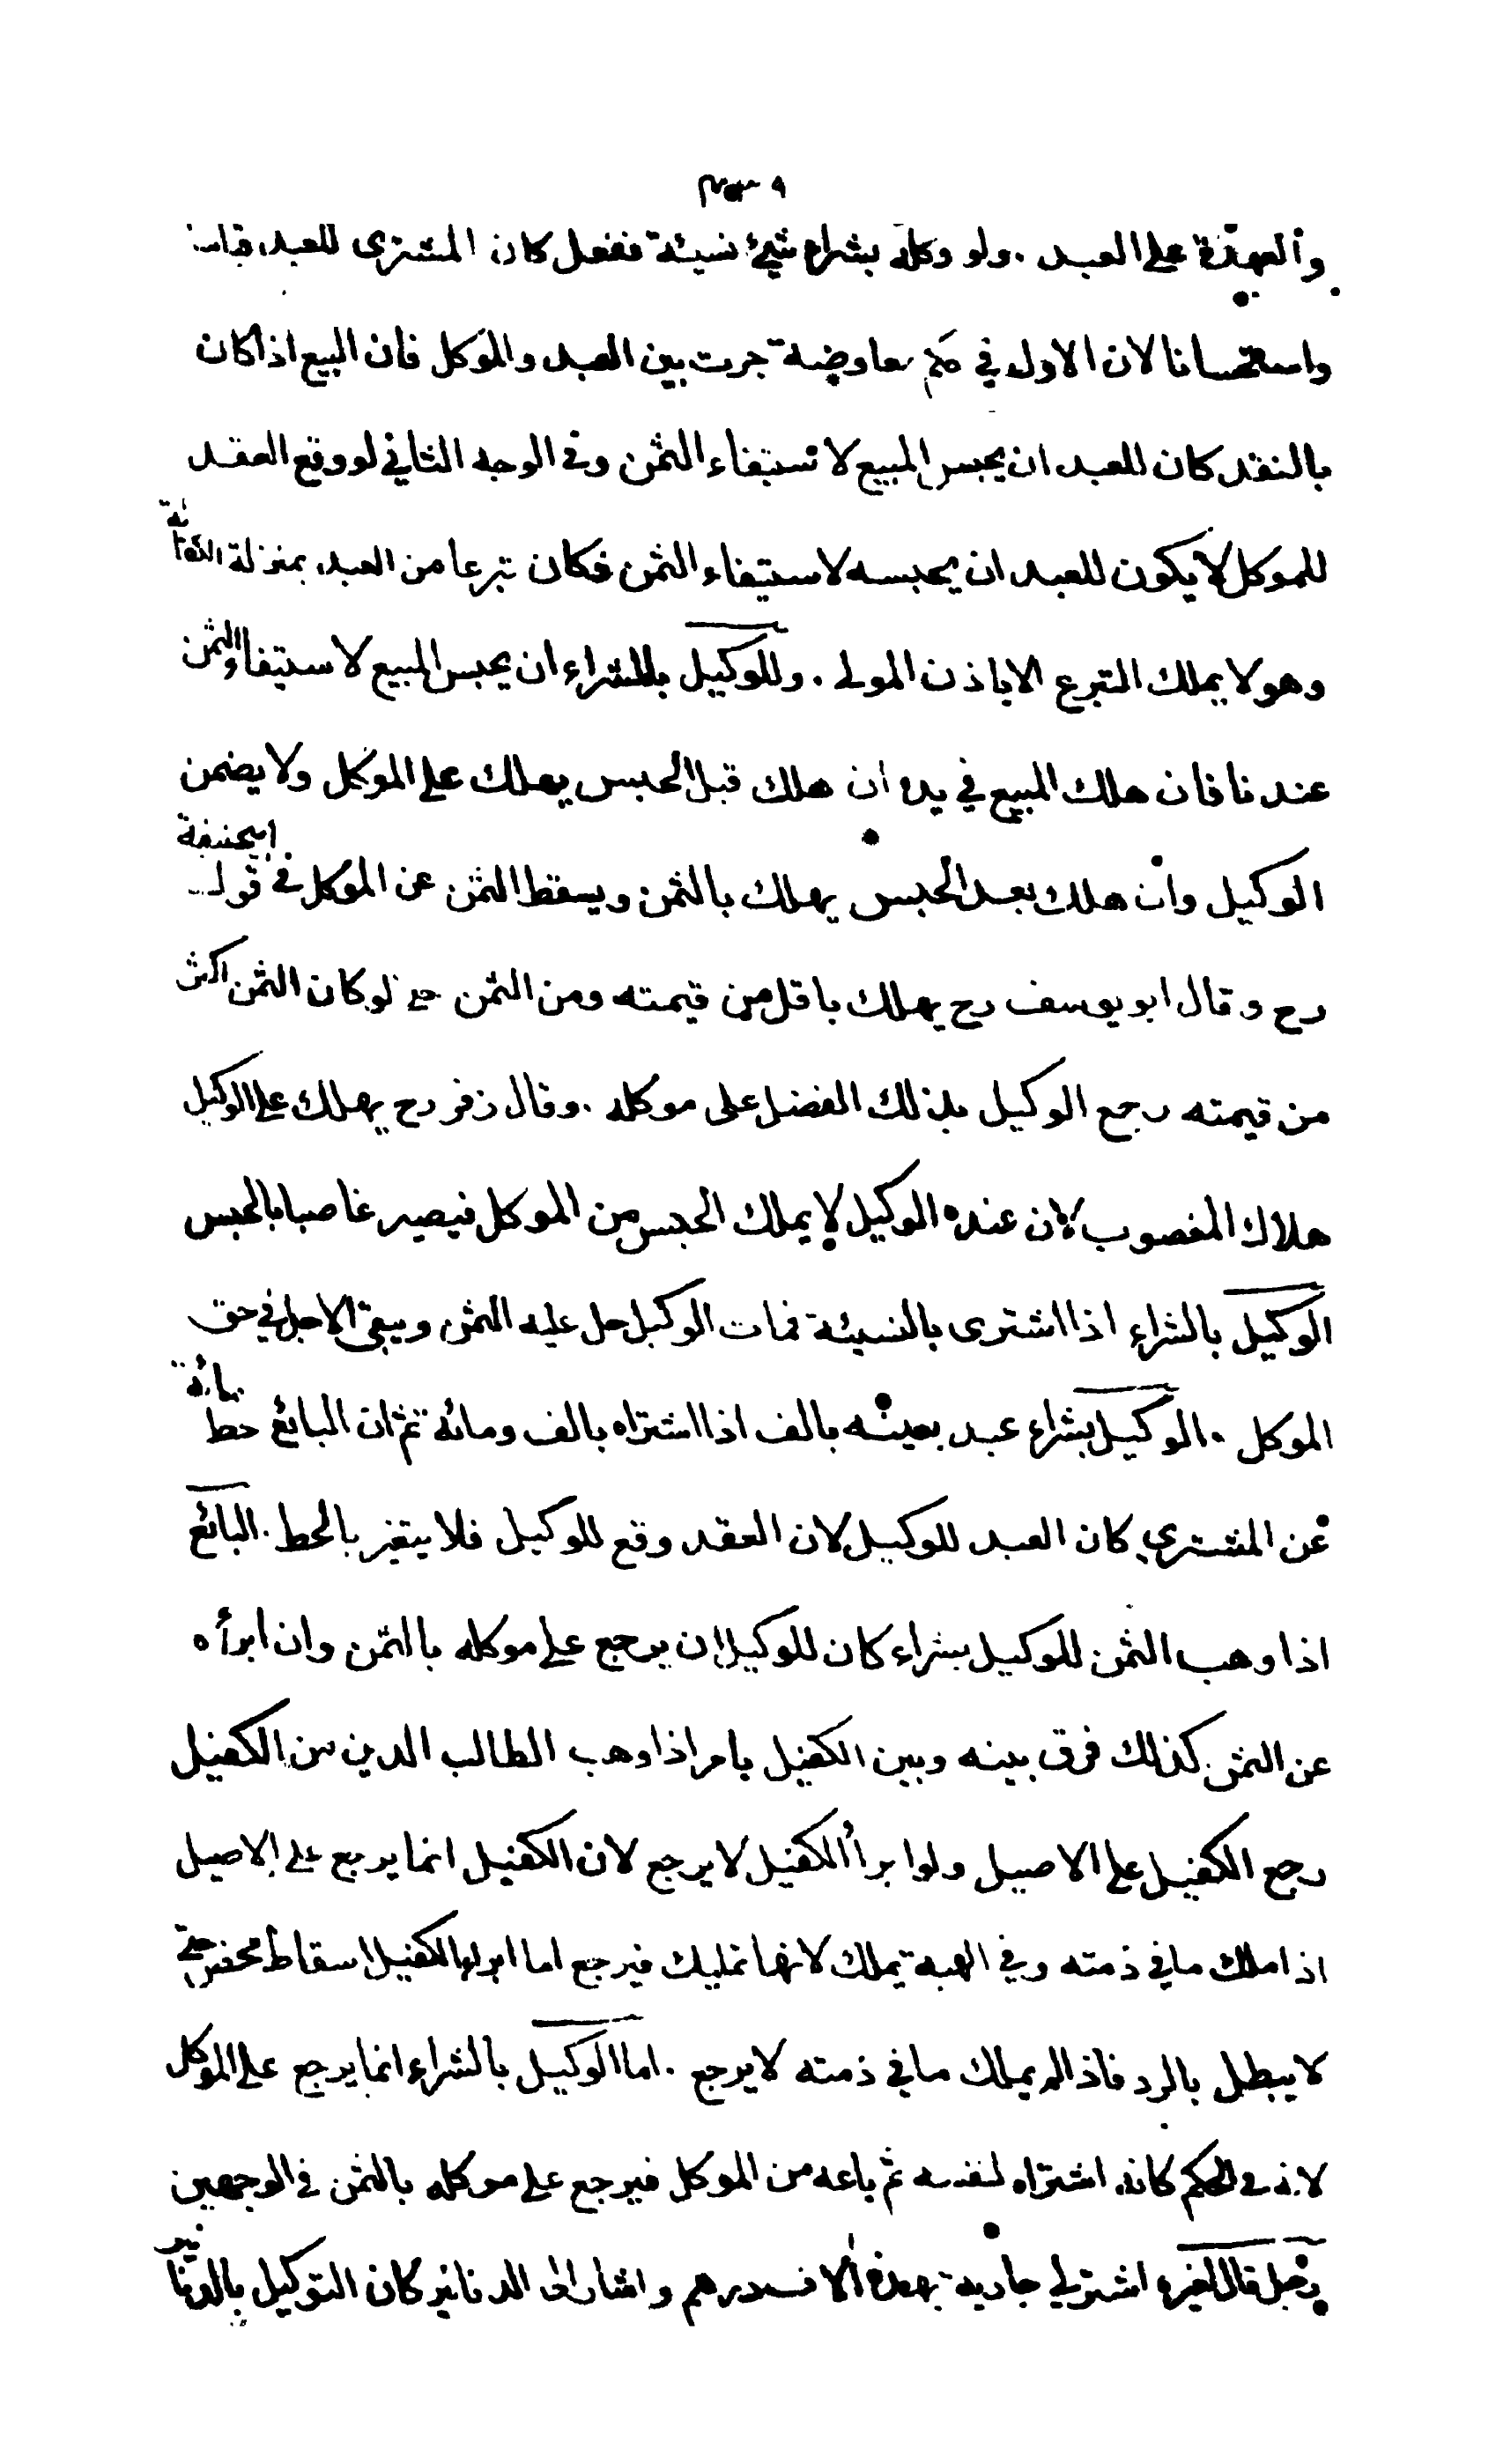 والعهدة على العبد . ولو وكله بشراء شيئ نسيئة ففعل كان المشترى للعبد قياسا
واستحسانا لان الاول في حكم معاوضة جرت بين العبد والموكل فان البيع اذا كان
بالنقد كان للعبد ان يحبس المبيع لاستيفاء الثمن وفى الوجه الثاني لو وقع العقد
للموكل لا يكون للعبد ان يحبسه لاستيفاء الثمن فكان تبرعا من العبد بمنزلة الكفالة
وهو لا يملك التبرع الا باذن المولى . وللوكيل بالشراء ان يحبس المبيع لاستيفاء الثمن
عندنا فان هلك المبيع في يده ان هلك قبل الحبس يهلك على الموكل ولا يضمن
الوكيل وان هلك بعد الحبس يهلك بالثمن ويسقط الثمن عن الموكل في قول ابيحنيفة
رح وقال ابو يوسف رح يهلك باقل من قيمته ومن الثمن حتى لو كان الثمن اكثر
من قيمته رجع الوكيل بذلك الفضل على موكله . وقال زفر رح يهلك على الوكيل
هلاك المغصوب لان عنده الوكيل لا يملك الحبس من الموكل فيصير غاصبا بالحبس
الوكيل بالشراء اذا اشترى بالنسيئة فمات الوكيل حل عليه الثمن ويبقى الاجل في حق
الموكل . الوكيل بشراء عبد بعينه بالف اذا اشتراه بالف ومائة ثم ان البائع حط مائة
عن المشتري كان العبد للوكيل لان العقد وقع للوكيل فلا يتغير بالحط . البائع
اذا وهب الثمن للوكيل بشراء كان للوكيل ان يرجع على موكله بالثمن وان ابرأه
عن الثمن كذلك فرق بينه وبين الكفيل بامر اذا وهب الطالب الدين من الكفيل
رجع الكفيل على الاصيل ولو ابرأ الكفيل لا يرجع لان الكفيل انما يرجع على الاصيل
اذا ملك ما في ذمته وفي الهبة يملك لانها تمليك فيرجع اما ابراء الكفيل اسقاط محض حتى
لا يبطل بالرد فاذا لم يملك ما في ذمته لا يرجع . اما الوكيل بالشراء انما يرجع على الموكل
لانه في الحكم كانه اشتراه لنفسه ثم باعه من الموكل فيرجع على موكله بالثمن في الوجهين
رجل قال لغيره اشتر لي جارية بهذه الالف درهم واشار الى الدنانير كان التوكيل بالدنانير